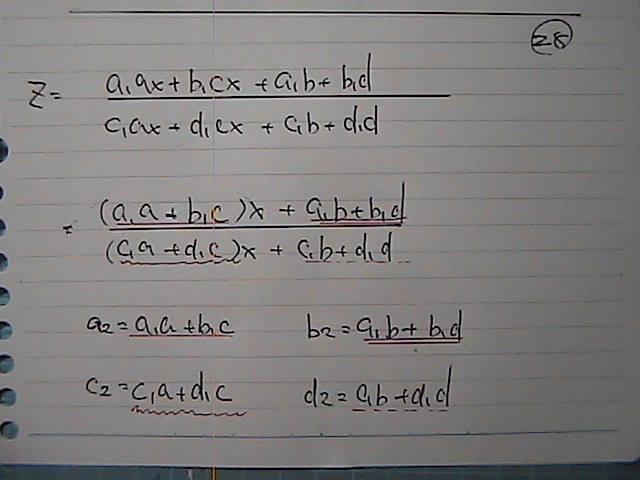 28
z = (a₁ax + b₁cx + a₁b + b₁d) / (c₁ax + d₁cx + c₁b + d₁d)
= ((a₁a + b₁c)x + a₁b + b₁d) / ((c₁a + d₁c)x + c₁b + d₁d)
a₂ = a₁a + b₁c   b₂ = a₁b + b₁d
c₂ = c₁a + d₁c   d₂ = c₁b + d₁d